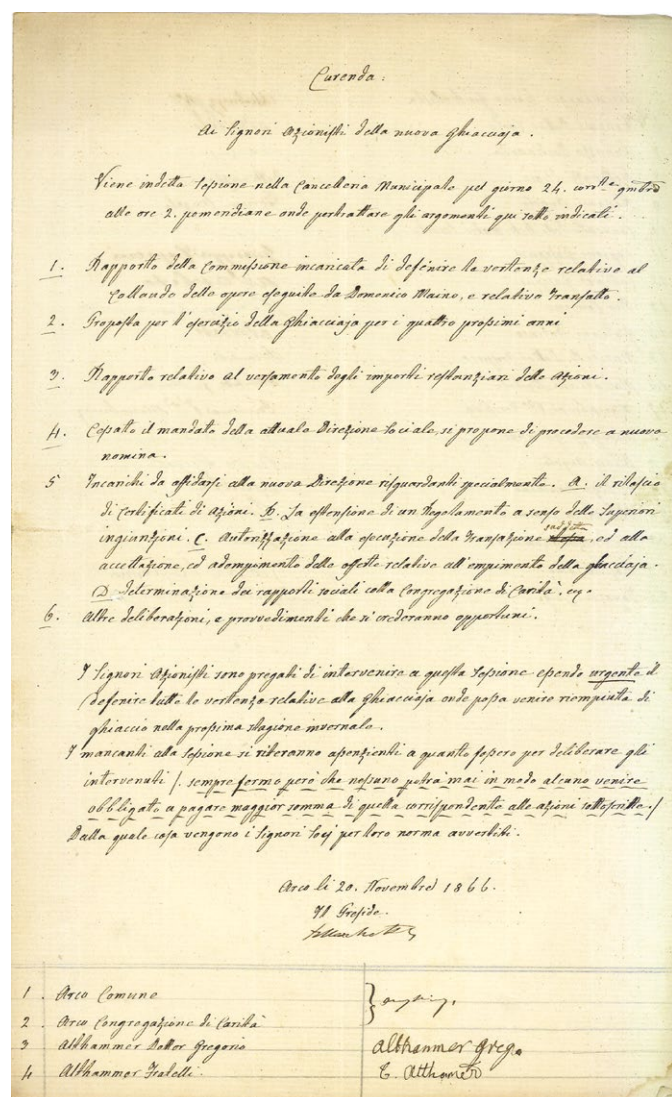 Curenda.
Ai Signori Azionisti della nuova Ghiacciaja.
Viene indetta Sessione nella Cancelleria Municipale pel giorno 24. corrte
alle ore 2. pomeridiane onde pertrattare gli argomenti qui sotto indicati.
1. Rapporto della Commissione incaricata di definire la vertenza relativa al
Collaudo delle opere eseguite da Domenico Maino, e relativo Transatto.
2. Proposta per l'esercizio della Ghiacciaja per i quattro prossimi anni
3. Rapporto relativo al versamento degli importi restanziari delle Azioni.
4. Cessato il mandato della attuale Direzione Sociale, si propone di procedere a nuova
nomina.
5 Incarichi da affidarsi alla nuova Direzione risguardanti specialmente. A. il rilascio
di Certificati di Azioni. B. La estensione di un Regolamento a senso delle Superiori
ingiunzioni. C. Autorizzazione alla esecuzione della Transazione suddetta, ed alla
accettazione, ed adempimento delle offerte relative all'empimento della ghiacciaja.
D. Determinazione dei rapporti sociali colla Congregazione di Carità.
6. Altre deliberazioni, e provvedimenti che si crederanno opportuni.
I Signori Azionisti sono pregati di intervenire a questa Sessione essendo urgente il
definire tutte le vertenze relative alla Ghiacciaja onde possa venire riempiuta di
ghiaccio nella prossima stagione invernale.
I mancanti alla Sessione si riterranno assenzienti a quanto fossero per deliberare gli
intervenuti /. sempre fermo però che nessuno potrà mai in modo alcuno venire
obbligato a pagare maggior somma di quella corrispondente alle azioni sottoscritte. /
Dalla quale cosa vengono i Signori Socj per loro norma avvertiti.
Arco li 20. Novembre 1866.
Il Preside.
1. Arco Comune
2. Arco Congregazione di Carità
3 Althammer Dottor Gregorio Althammer Grego
4 Althammer Fratelli. E. Althamer